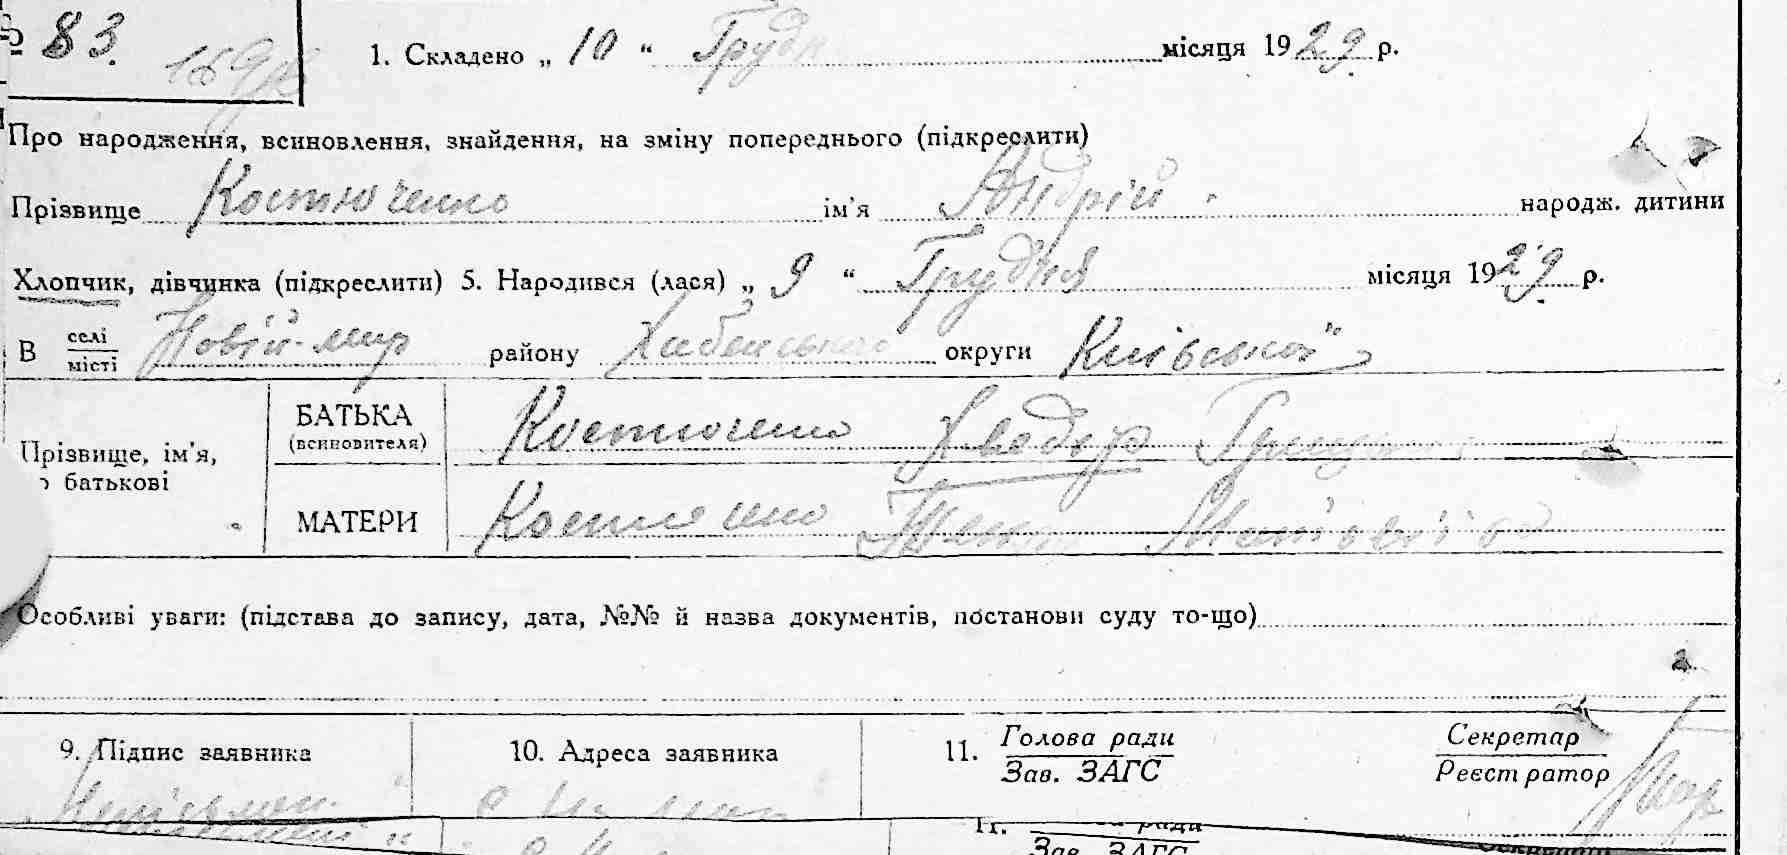 № 83.
1. Складено „ 10 “ Грудн місяця 1929 р.
Про народження, всиновлення, знайдення, на зміну попереднього (підкреслити)
Прізвище Костюченко ім'я Андрій народж. дитини
Хлопчик, дівчинка (підкреслити) 5. Народився (лася) „ 9 “ Грудня місяця 1929 р.
В селі місті Новій-мир району Хабенського округи Київської
Прізвище, ім'я, по батькові
БАТЬКА Костюченко Хведор
(всиновителя)
МАТЕРИ Костюченко
Особливі уваги: (підстава до запису, дата, №№ й назва документів, постанови суду то-що)
9. Підпис заявника 10. Адреса заявника 11. Голова ради Секретар
Зав. ЗАГС Реєстратор
11. ради
Зав. ЗАГС